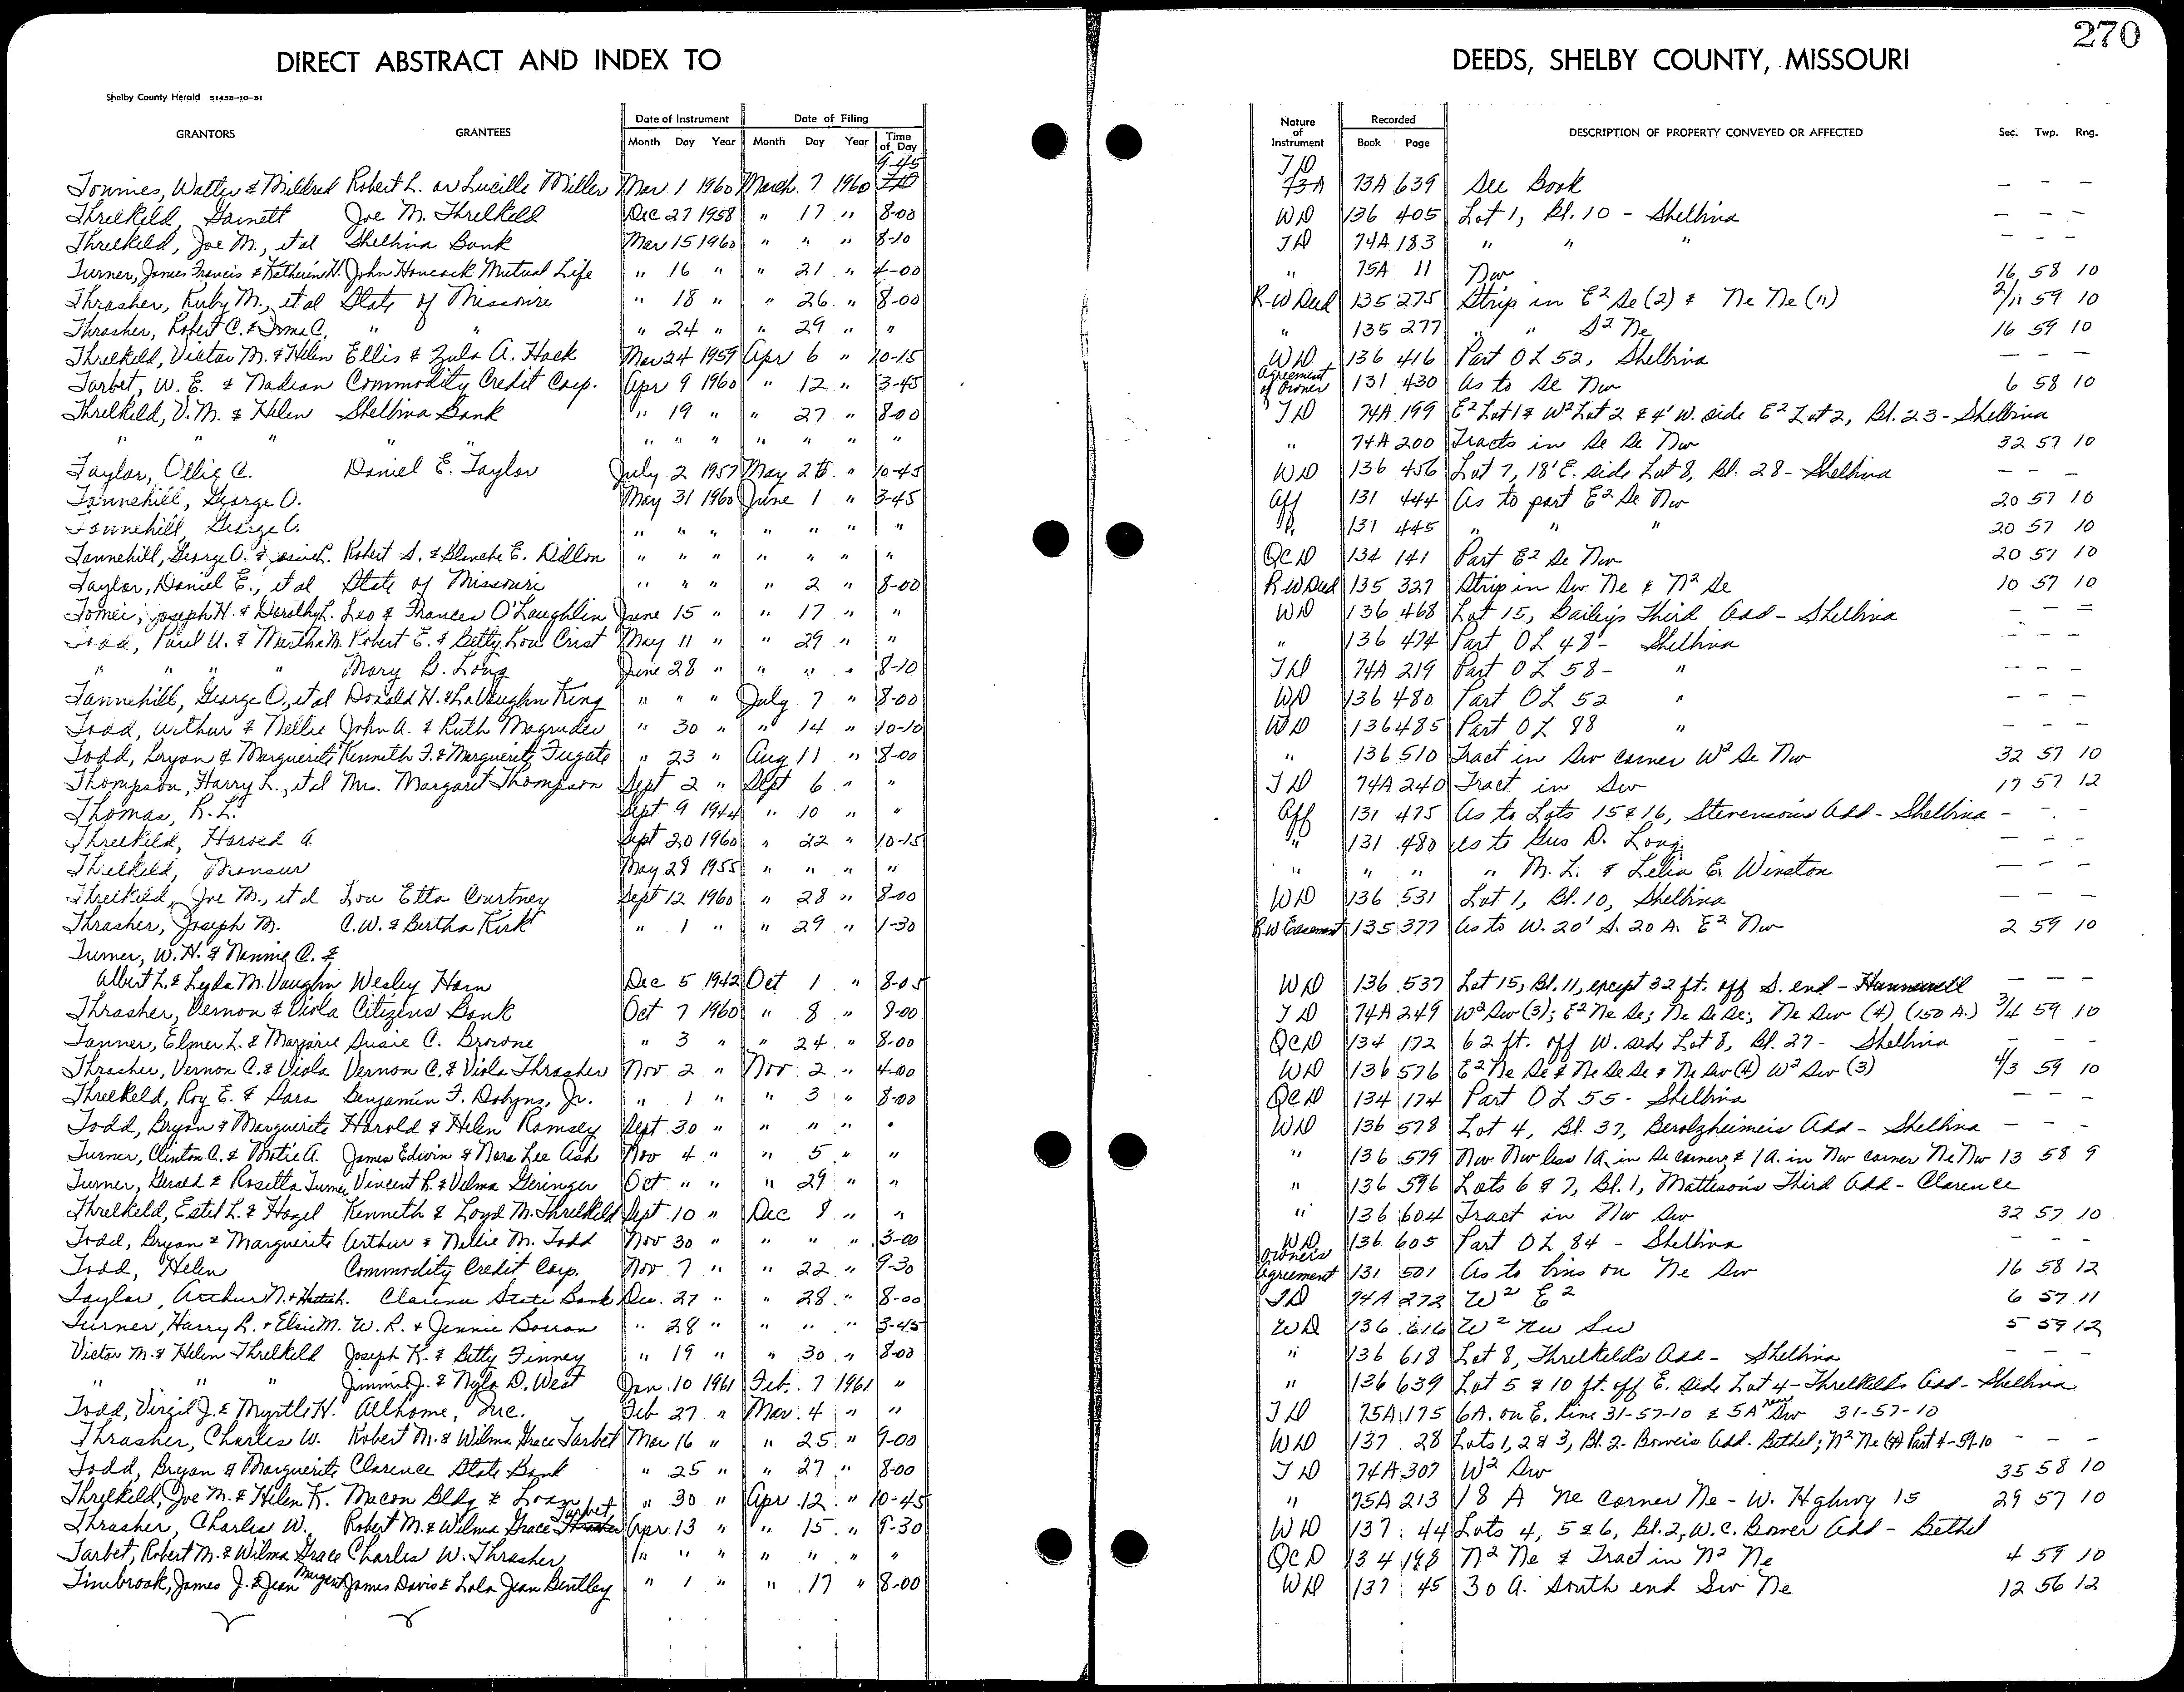 270
DIRECT ABSTRACT AND INDEX TO DEEDS, SHELBY COUNTY, MISSOURI
Shelby County Herald 51458-10-51
Date of Instrument Date of Filing Nature of Instrument Recorded
GRANTORS GRANTEES Month Day Year Month Day Year Time of Day Book Page DESCRIPTION OF PROPERTY CONVEYED OR AFFECTED Sec. Twp. Rng.
Tonnies, Walter & Mildred Robert L. or Lucille Miller Mar 1 1960 March 7 1960 9-45 TD 73A 639 See Book — — —
Threlkeld, Garnett Joe M. Threlkeld Dec 27 1958 " 17 " 8-00 WD 136 405 Lot 1, Bl. 10 - Shelbina — — —
Threlkeld, Joe M., et al Shelbina Bank Mar 15 1960 " " " 8-10 TD 74A 183 " " " — — —
Turner, James Francis & Katherine H. John Hancock Mutual Life " 16 " " 21 " 4-00 " 75A 11 Nw 16 58 10
Thrasher, Ruby M., et al State of Missouri " 18 " " 26 " 8-00 R-W Deed 135 275 Strip in E² Se (2) & Ne Ne (11) 2/11 59 10
Thrasher, Robert C. & Irma C. " " " 24 " " 29 " " " 135 277 " " S² Ne 16 59 10
Threlkeld, Victor M. & Helen Ellis & Zula A. Hack Mar 24 1959 Apr 6 " 10-15 WD 136 416 Part OL 52, Shelbina — — —
Tarbet, W. E. & Nadean Commodity Credit Corp. Apr 9 1960 " 12 " 3-45 Agreement of Owner 131 430 As to Se Nw 6 58 10
Threlkeld, V. M. & Helen Shelbina Bank " 19 " " 27 " 8-00 TD 74A 199 E² Lot 1 & W² Lot 2 & 4' W. side E² Lot 2, Bl. 23 - Shelbina
" " " " " " " " " " " " " 74A 200 Tracts in Se Se Nw 32 57 10
Taylor, Ollie C. Daniel E. Taylor July 2 1957 May 28 " 10-45 WD 136 456 Lot 7, 18' E. side Lot 8, Bl. 28 - Shelbina — — —
Tannehill, George O. May 31 1960 June 1 " 3-45 Aff 131 444 As to part E² Se Nw 20 57 10
Tannehill, George O. " " " " " " " " 131 445 " " " 20 57 10
Tannehill, George O. & Josie L. Robert S. & Blanche E. Dillon " " " " " " " QCD 134 141 Part E² Se Nw 20 57 10
Taylor, Daniel E., et al State of Missouri " " " " 2 " 8-00 R-W Deed 135 327 Strip in Sw Ne & N² Se 10 57 10
Tomei, Joseph H. & Dorothy L. Leo & Frances O'Laughlin June 15 " " 17 " " WD 136 468 Lot 15, Bailey's Third Add - Shelbina — — —
Todd, Paul U. & Martha M. Robert E. & Betty Lou Crist May 11 " " 29 " " " 136 474 Part OL 48 - Shelbina — — —
" " " " Mary B. Long June 28 " " " " 8-10 TD 74A 219 Part OL 58 - " — — —
Tannehill, George O., et al Donald H. & LaVaughn King " " " July 7 " 8-00 WD 136 480 Part OL 52 " — — —
Todd, Arthur & Nellie John A. & Ruth Magruder " 30 " " 14 " 10-10 WD 136 485 Part OL 88 " — — —
Todd, Bryan & Marguerite Kenneth F. & Marguerite Fugate " 23 " Aug 11 " 8-00 " 136 510 Tract in Sw corner W² Se Nw 32 57 10
Thompson, Harry L., et al Mrs. Margaret Thompson Sept 2 " Sept 6 " " TD 74A 240 Tract in Sw 17 57 12
Thomas, R. L. Sept 9 1944 " 10 " " Aff 131 475 As to Lots 15 & 16, Stevenson's Add - Shelbina — — —
Threlkeld, Harold A. Sept 20 1960 " 22 " 10-15 " 131 480 As to Gus D. Long — — —
Threlkeld, Monsur May 28 1955 " " " " " " " " M. L. & Lelia E. Winston — — —
Threlkeld, Joe M., et al Lou Etta Courtney Sept 12 1960 " 28 " 8-00 WD 136 531 Lot 1, Bl. 10, Shelbina — — —
Thrasher, Joseph M. C.W. & Bertha Kirk " 1 " " 29 " 1-30 R-W Easement 135 377 As to W. 20' S. 20 A. E² Nw 2 59 10
Turner, W. H. & Nannie C. &
Albert L. & Leyda M. Vaughn Wesley Horn Dec 5 1942 Oct 1 " 8-05 WD 136 537 Lot 15, Bl. 11, except 32 ft. off S. end - Hunnewell — — —
Thrasher, Vernon & Viola Citizens Bank Oct 7 1960 " 8 " 9-00 TD 74A 249 W² Sw (3); E² Ne Se; Ne Se Se; Ne Sw (4) (150 A.) 3/4 59 10
Tanner, Elmer L. & Marjorie Susie C. Browne " 3 " " 24 " 8-00 QCD 134 172 62 ft. off W. side Lot 8, Bl. 27 - Shelbina — — —
Thrasher, Vernon C. & Viola Vernon C. & Viola Thrasher Nov 2 " Nov 2 " 4-00 WD 136 576 E² Ne Se & Ne Se Se & Ne Sw (4) W² Sw (3) 4/3 59 10
Threlkeld, Roy E. & Sara Benjamin F. Dobyns, Jr. " 1 " " 3 " 8-00 QCD 134 174 Part OL 55 - Shelbina — — —
Todd, Bryan & Marguerite Harold & Helen Ramsey Sept 30 " " " " " WD 136 578 Lot 4, Bl. 37, Berolzheimer's Add - Shelbina — — —
Turner, Clinton C. & Motie A. James Edwin & Nora Lee Ash Nov 4 " " 5 " " " 136 579 Nw Nw less 1 A. in Se corner & 1 A. in Nw corner Ne Nw 13 58 9
Turner, Gerald & Rosetta Turner Vincent P. & Velma Geringer Oct " " " 29 " " " 136 596 Lots 6 & 7, Bl. 1, Mattison's Third Add - Clarence
Threlkeld, Estel L. & Hazel Kenneth & Loyd M. Threlkeld Sept 10 " Dec 8 " " " 136 604 Tract in Nw Sw 32 57 10
Todd, Bryan & Marguerite Arthur & Nellie M. Todd Nov 30 " " " " 3-00 WD 136 605 Part OL 84 - Shelbina — — —
Todd, Helen Commodity Credit Corp. Nov 7 " " 22 " 9-30 Owners Agreement 131 501 As to bins on Ne Sw 16 58 12
Taylor, Arthur N. & Hattie h. Clarence State Bank Dec. 27 " " 28 " 8-00 TD 74A 272 W² E² 6 57 11
Turner, Harry R. & Elsie M. W. R. & Jennie Borron " 28 " " " " 3-45 WD 136 616 W² Nw Sw 5 59 12
Victor M. & Helen Threlkeld Joseph K. & Betty Finney " 19 " " 30 " 8-00 " 136 618 Lot 8, Threlkeld's Add - Shelbina — — —
" " " Jimmie J. & Nyla D. West Jan 10 1961 Feb. 7 1961 " " 136 639 Lot 5 & 10 ft. off E. side Lot 4 - Threlkeld's Add - Shelbina
Todd, Virgil J. & Myrtle H. Allhome, Inc. Feb 27 " Mar. 4 " " TD 75A 175 6A. on E. line 31-57-10 & 5A near Sw 31-57-10
Thrasher, Charles W. Robert M. & Wilma Grace Tarbet Mar 16 " " 25 " 9-00 WD 137 28 Lots 1, 2 & 3, Bl. 2 - Bower's Add - Bethel; N² Ne (4) Part 4-59-10 — — —
Todd, Bryan & Marguerite Clarence State Bank " 25 " " 27 " 8-00 TD 74A 307 W² Sw 35 58 10
Threlkeld, Joe M. & Helen K. Macon Bldg & Loan " 30 " Apr 12 " 10-45 " 75A 213 18 A Ne corner Ne - W. Hghwy 15 29 57 10
Thrasher, Charles W. Robert M. & Wilma Grace Tarbet Apr 13 " " 15 " 9-30 WD 137 44 Lots 4, 5 & 6, Bl. 2, W. C. Bower Add - Bethel
Tarbet, Robert M. & Wilma Grace Charles W. Thrasher " " " " " " " QCD 134 198 N² Ne & Tract in N² Ne 4 59 10
Timbrook, James J. & Jean Margaret James Davis & Lola Jean Bentley " 1 " " 17 " 8-00 WD 137 45 30 A. South end Sw Ne 12 56 12